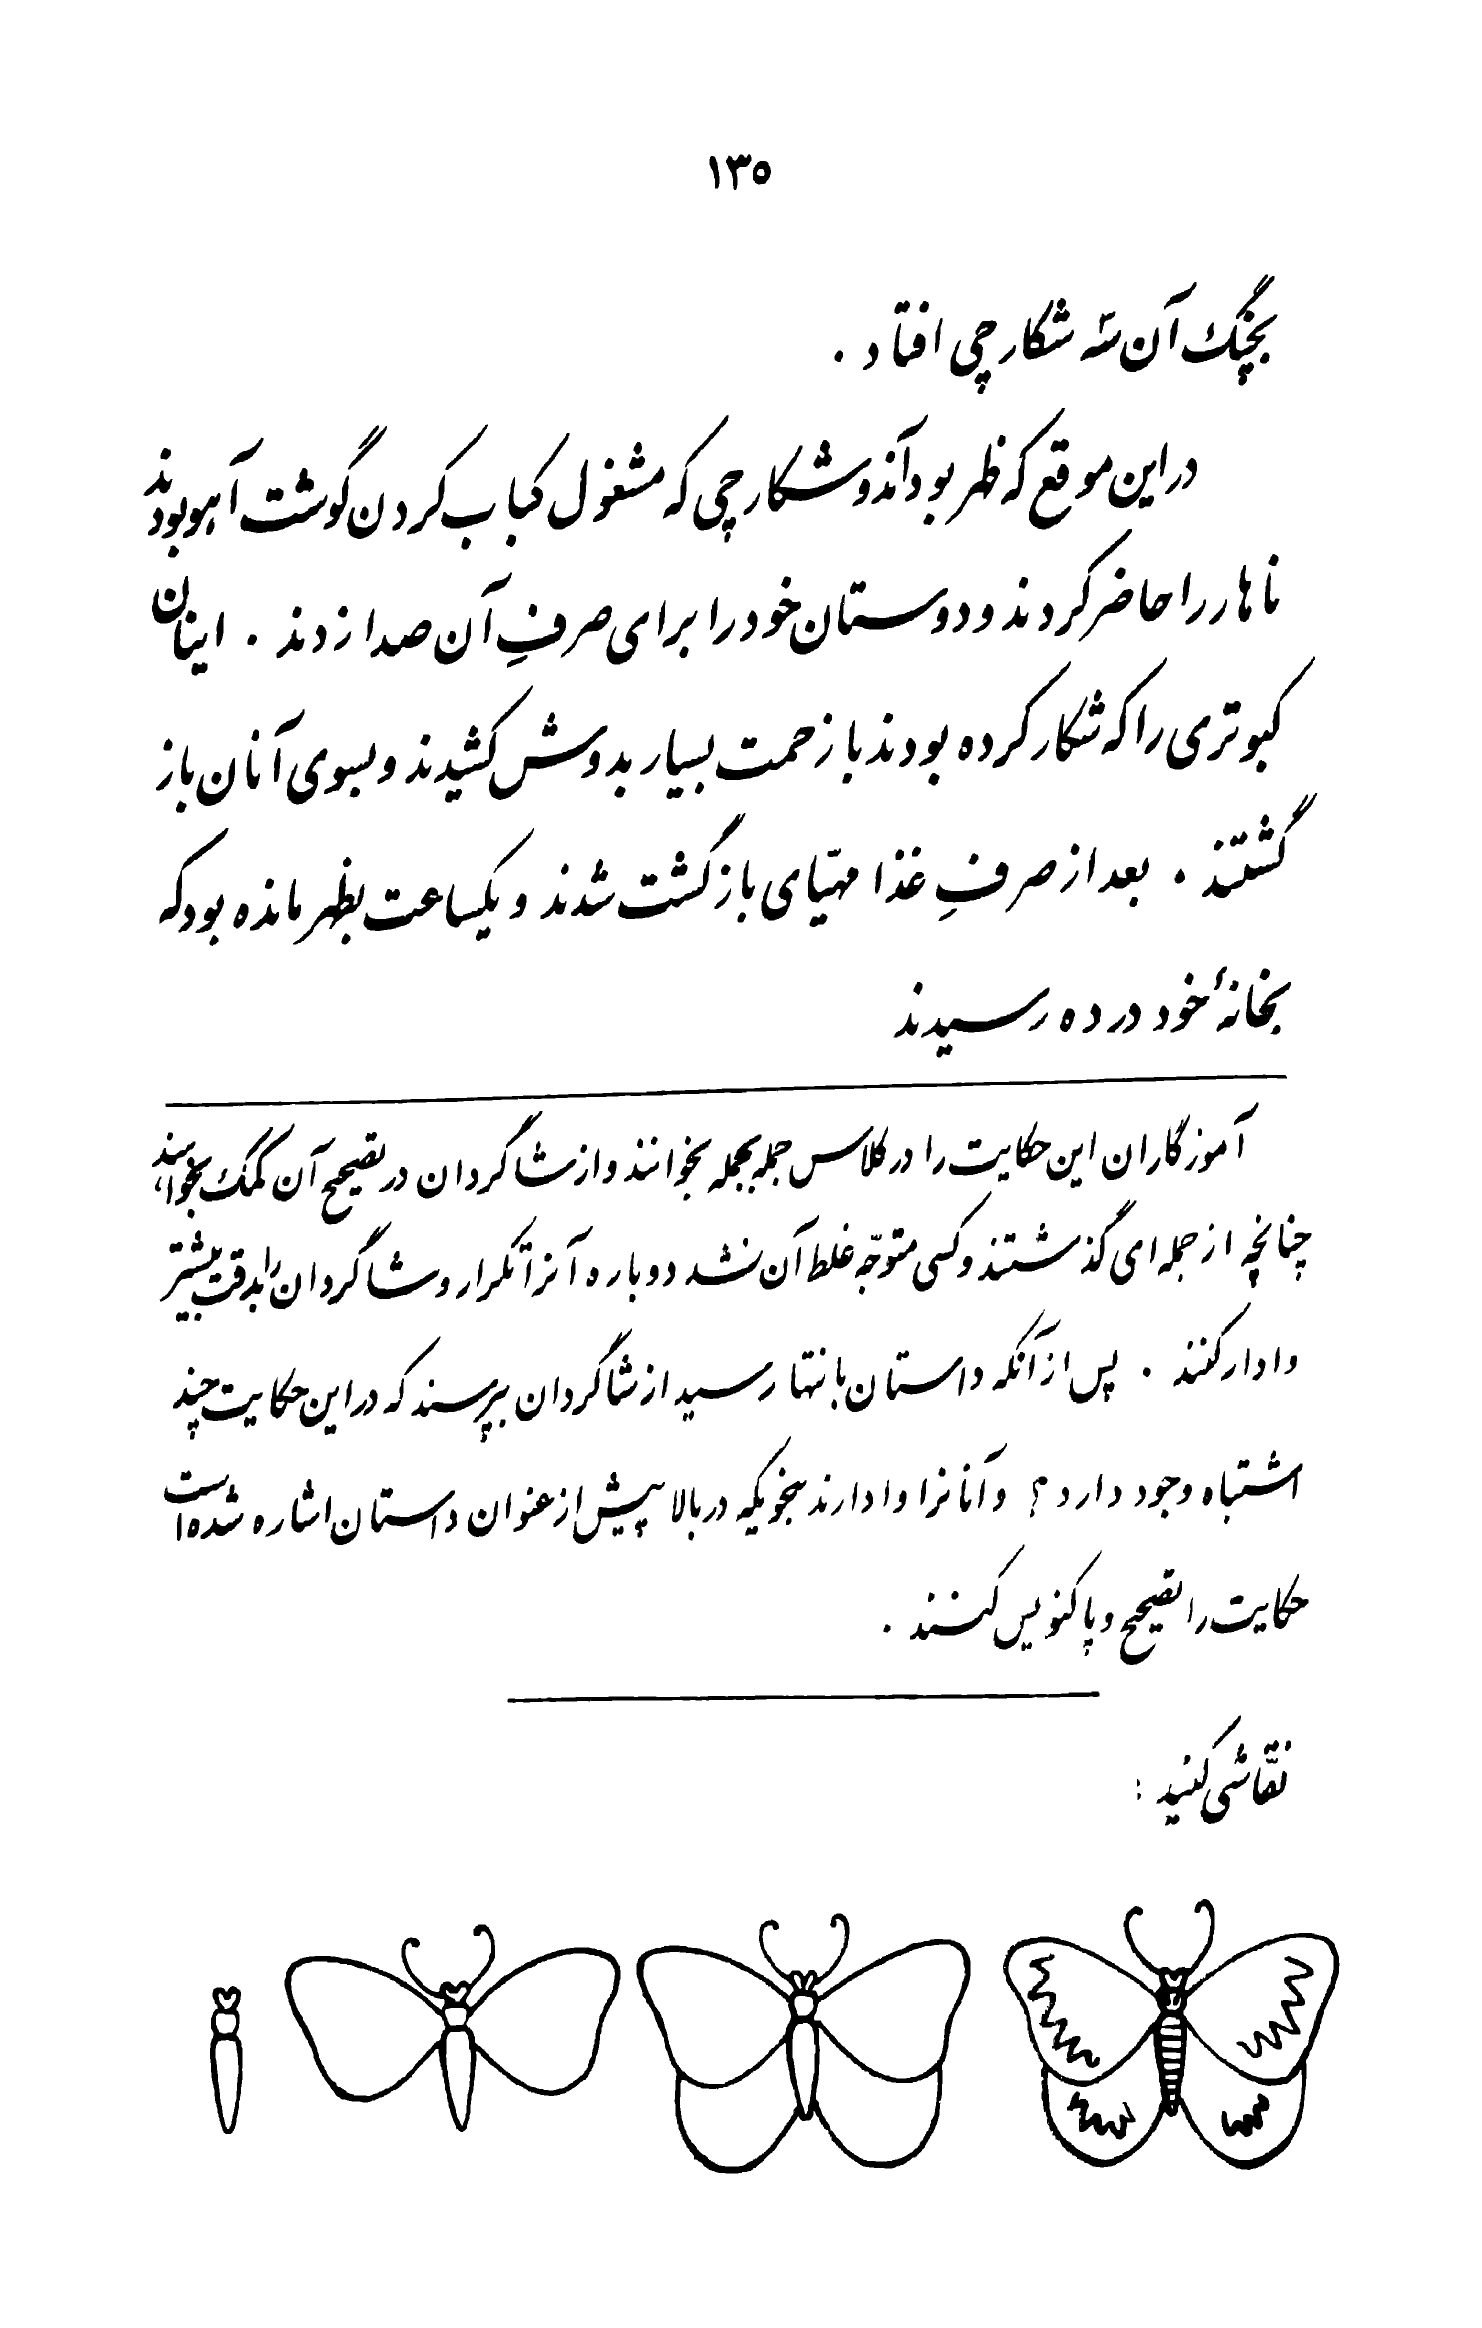 ۱۳۵
بچنگ آن سه شکارچی افتاد .
در این موقع که ظهر بود آندو شکارچی که مشغول کباب کردن گوشت آهو بودند
ناهار را حاضر کردند و دوستان خود را برای صرفِ آن صدا زدند . اینان
کبوتری را که شکار کرده بودند با زحمت بسیار بدوش کشیدند و بسوی آنان باز
گشتند . بعد از صرفِ غذا مهیّای بازگشت شدند و یکساعت بظهر مانده بود که
بخانهٔ خود در ده رسیدند
آموزگاران این حکایت را در کلاس جمله بجمله بخوانند و از شاگردان در تصحیح آن کمک بخواهند
چنانچه از جمله ای گذشتند و کسی متوجّه غلط آن نشد دوباره آنرا تکرار و شاگردان را بدقت بیشتر
وادار کنند . پس از آنکه داستان بانتها رسید از شاگردان بپرسند که در این حکایت چند
اشتباه وجود دارد ؟ و آنانرا وادارند بنحویکه در بالا پیش از عنوان داستان اشاره شده است
حکایت را تصحیح و پاکنویس کنند .
نقّاشی کنید :